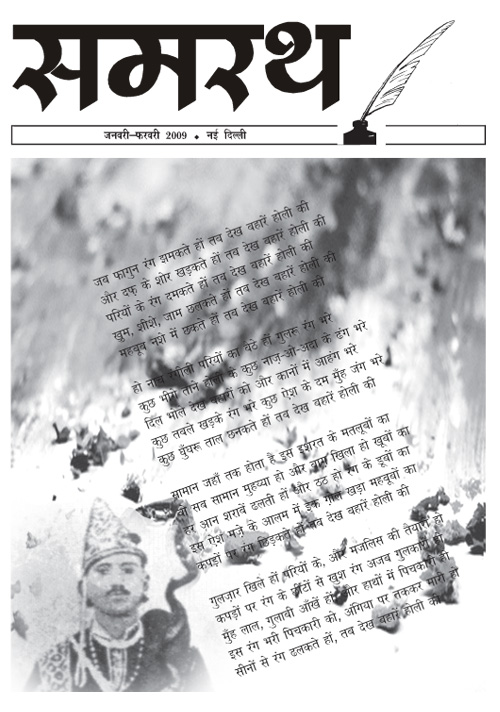 समरथ
जनवरी-फरवरी 2009 ◆ नई दिल्ली
जब फागुन रंग झमकते हों तब देख बहारें होली की
और दफ़ के शोर खड़कते हों तब देख बहारें होली की
परियों के रंग दमकते हों तब देख बहारें होली की
खुम, शीशे, जाम छलकते हों तब देख बहारें होली की
महबूब नशे में छकते हों तब देख बहारें होली की
हो नाच रंगीली परियों का बैठे हों गुलरू रंग भरे
कुछ भीगी तानें होली की कुछ नाज़-ओ-अदा के ढंग भरे
दिल भोले देख बहारों को और कानों में आहंग भरे
कुछ तबले खड़के रंग भरे कुछ ऐश के दम मुँह जंग भरे
कुछ घुँघरू ताल छनकते हों तब देख बहारें होली की
सामान जहाँ तक होता है इस इशरत के मतलूबों का
वो सब सामान मुहय्या हो और बाग़ खिला हो खूबों का
हर आन शराबें ढलती हों और ठठ हो रंग के डूबों का
इस ऐश मज़े के आलम में इक ग़ोल खड़ा महबूबों का
कपड़ों पर रंग छिड़कते हों तब देख बहारें होली की
गुलज़ार खिले हों परियों के, और मजलिस की तैयारी हो
कपड़ों पर रंग के छींटों से खुश रंग अजब गुलकारी हो
मुँह लाल, गुलाबी आँखें हों और हाथों में पिचकारी हो
इस रंग भरी पिचकारी को, अंगिया पर तककर मारी हो
सीनों से रंग ढलकते हों, तब देख बहारें होली की